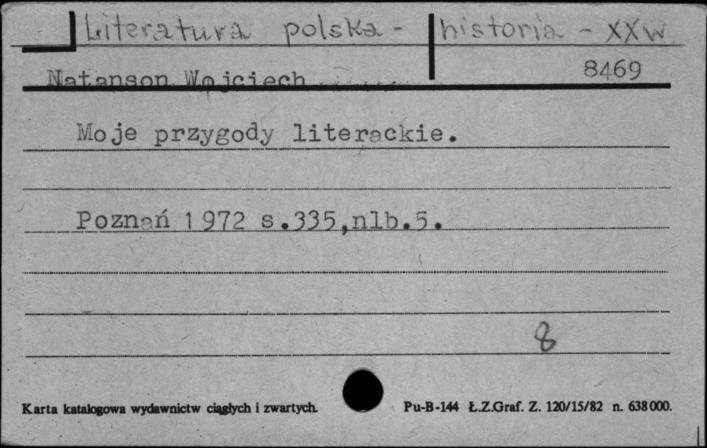 Literatura polska - historia - XXw
Natanson Wojciech 8469
Moje przygody literackie.
Poznań 1972 s.335,nlb.5.
8
Karta katalogowa wydawnictw ciągłych i zwartych. Pu-B-144 Ł.Z.Graf. Z. 120/15/82 n. 638000.